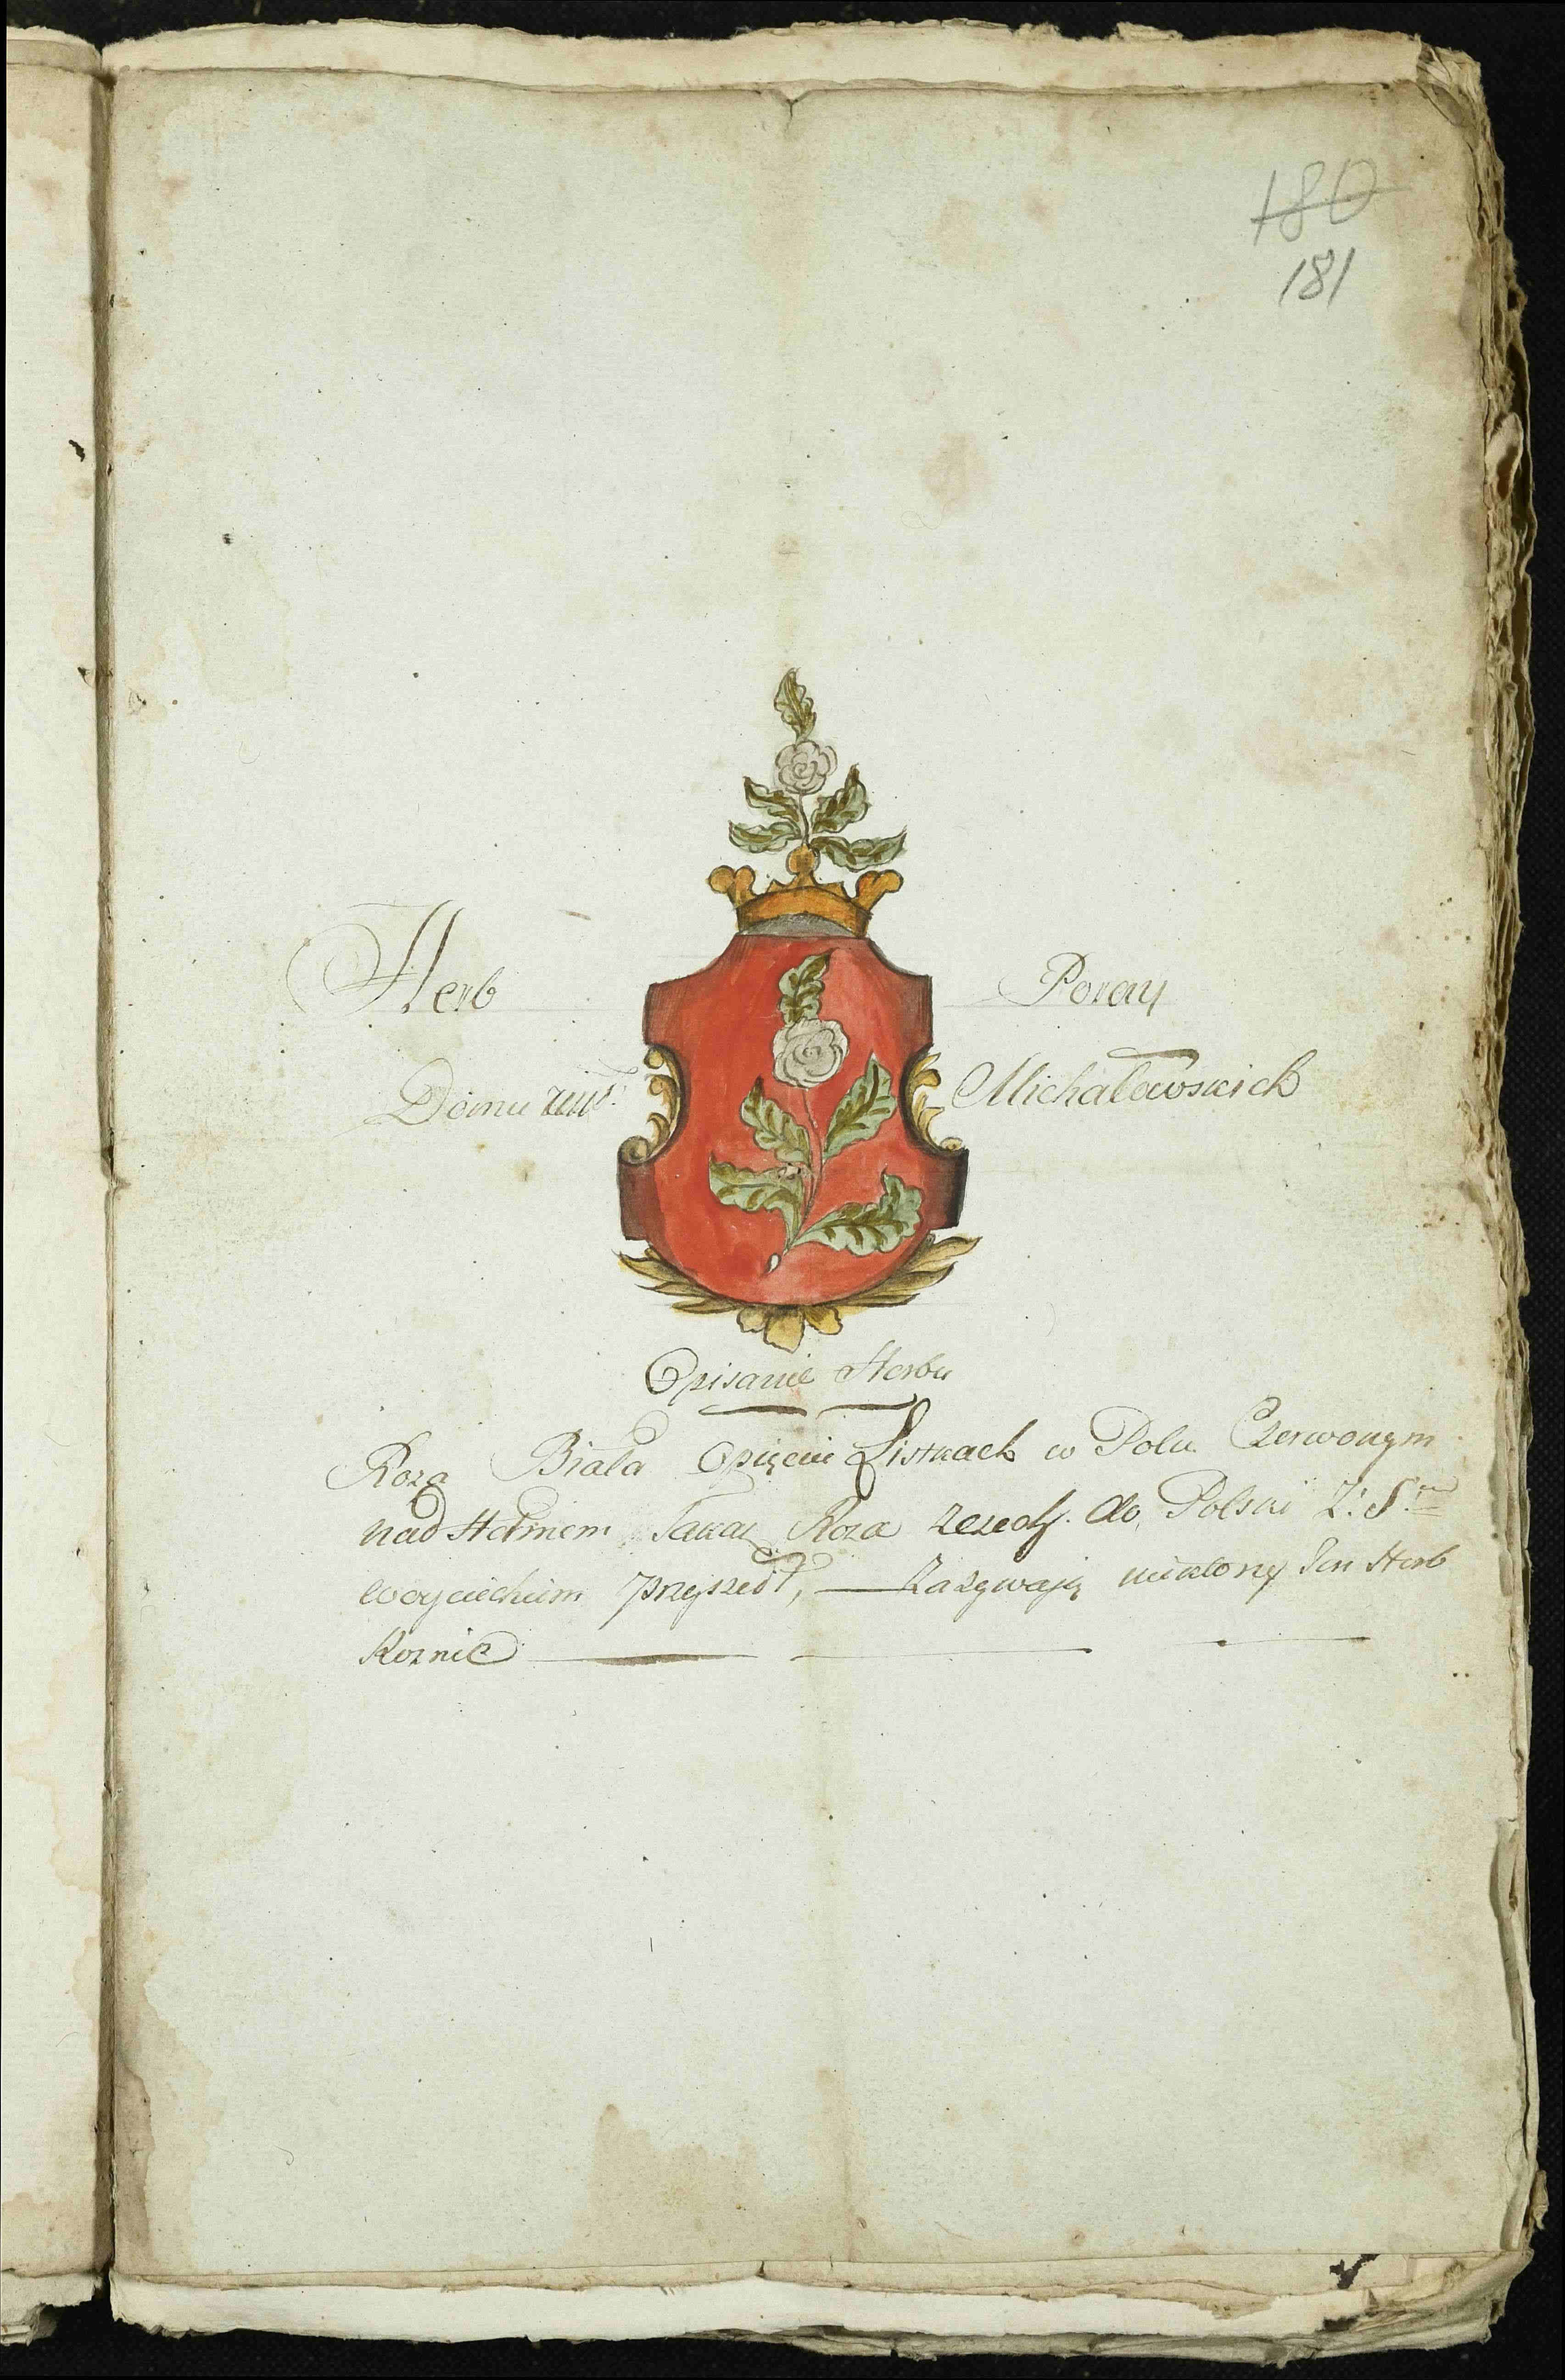 180
181
Herb Poray
Domu Michałowskich
Opisanie Herbu
Roza Biała o pięciu Listkach w Polu Czerwonym
nad Hełmem Takaż Roza do Polski Z: S:
Woyciechem przyszedł, — Zazywaią Ten Herb